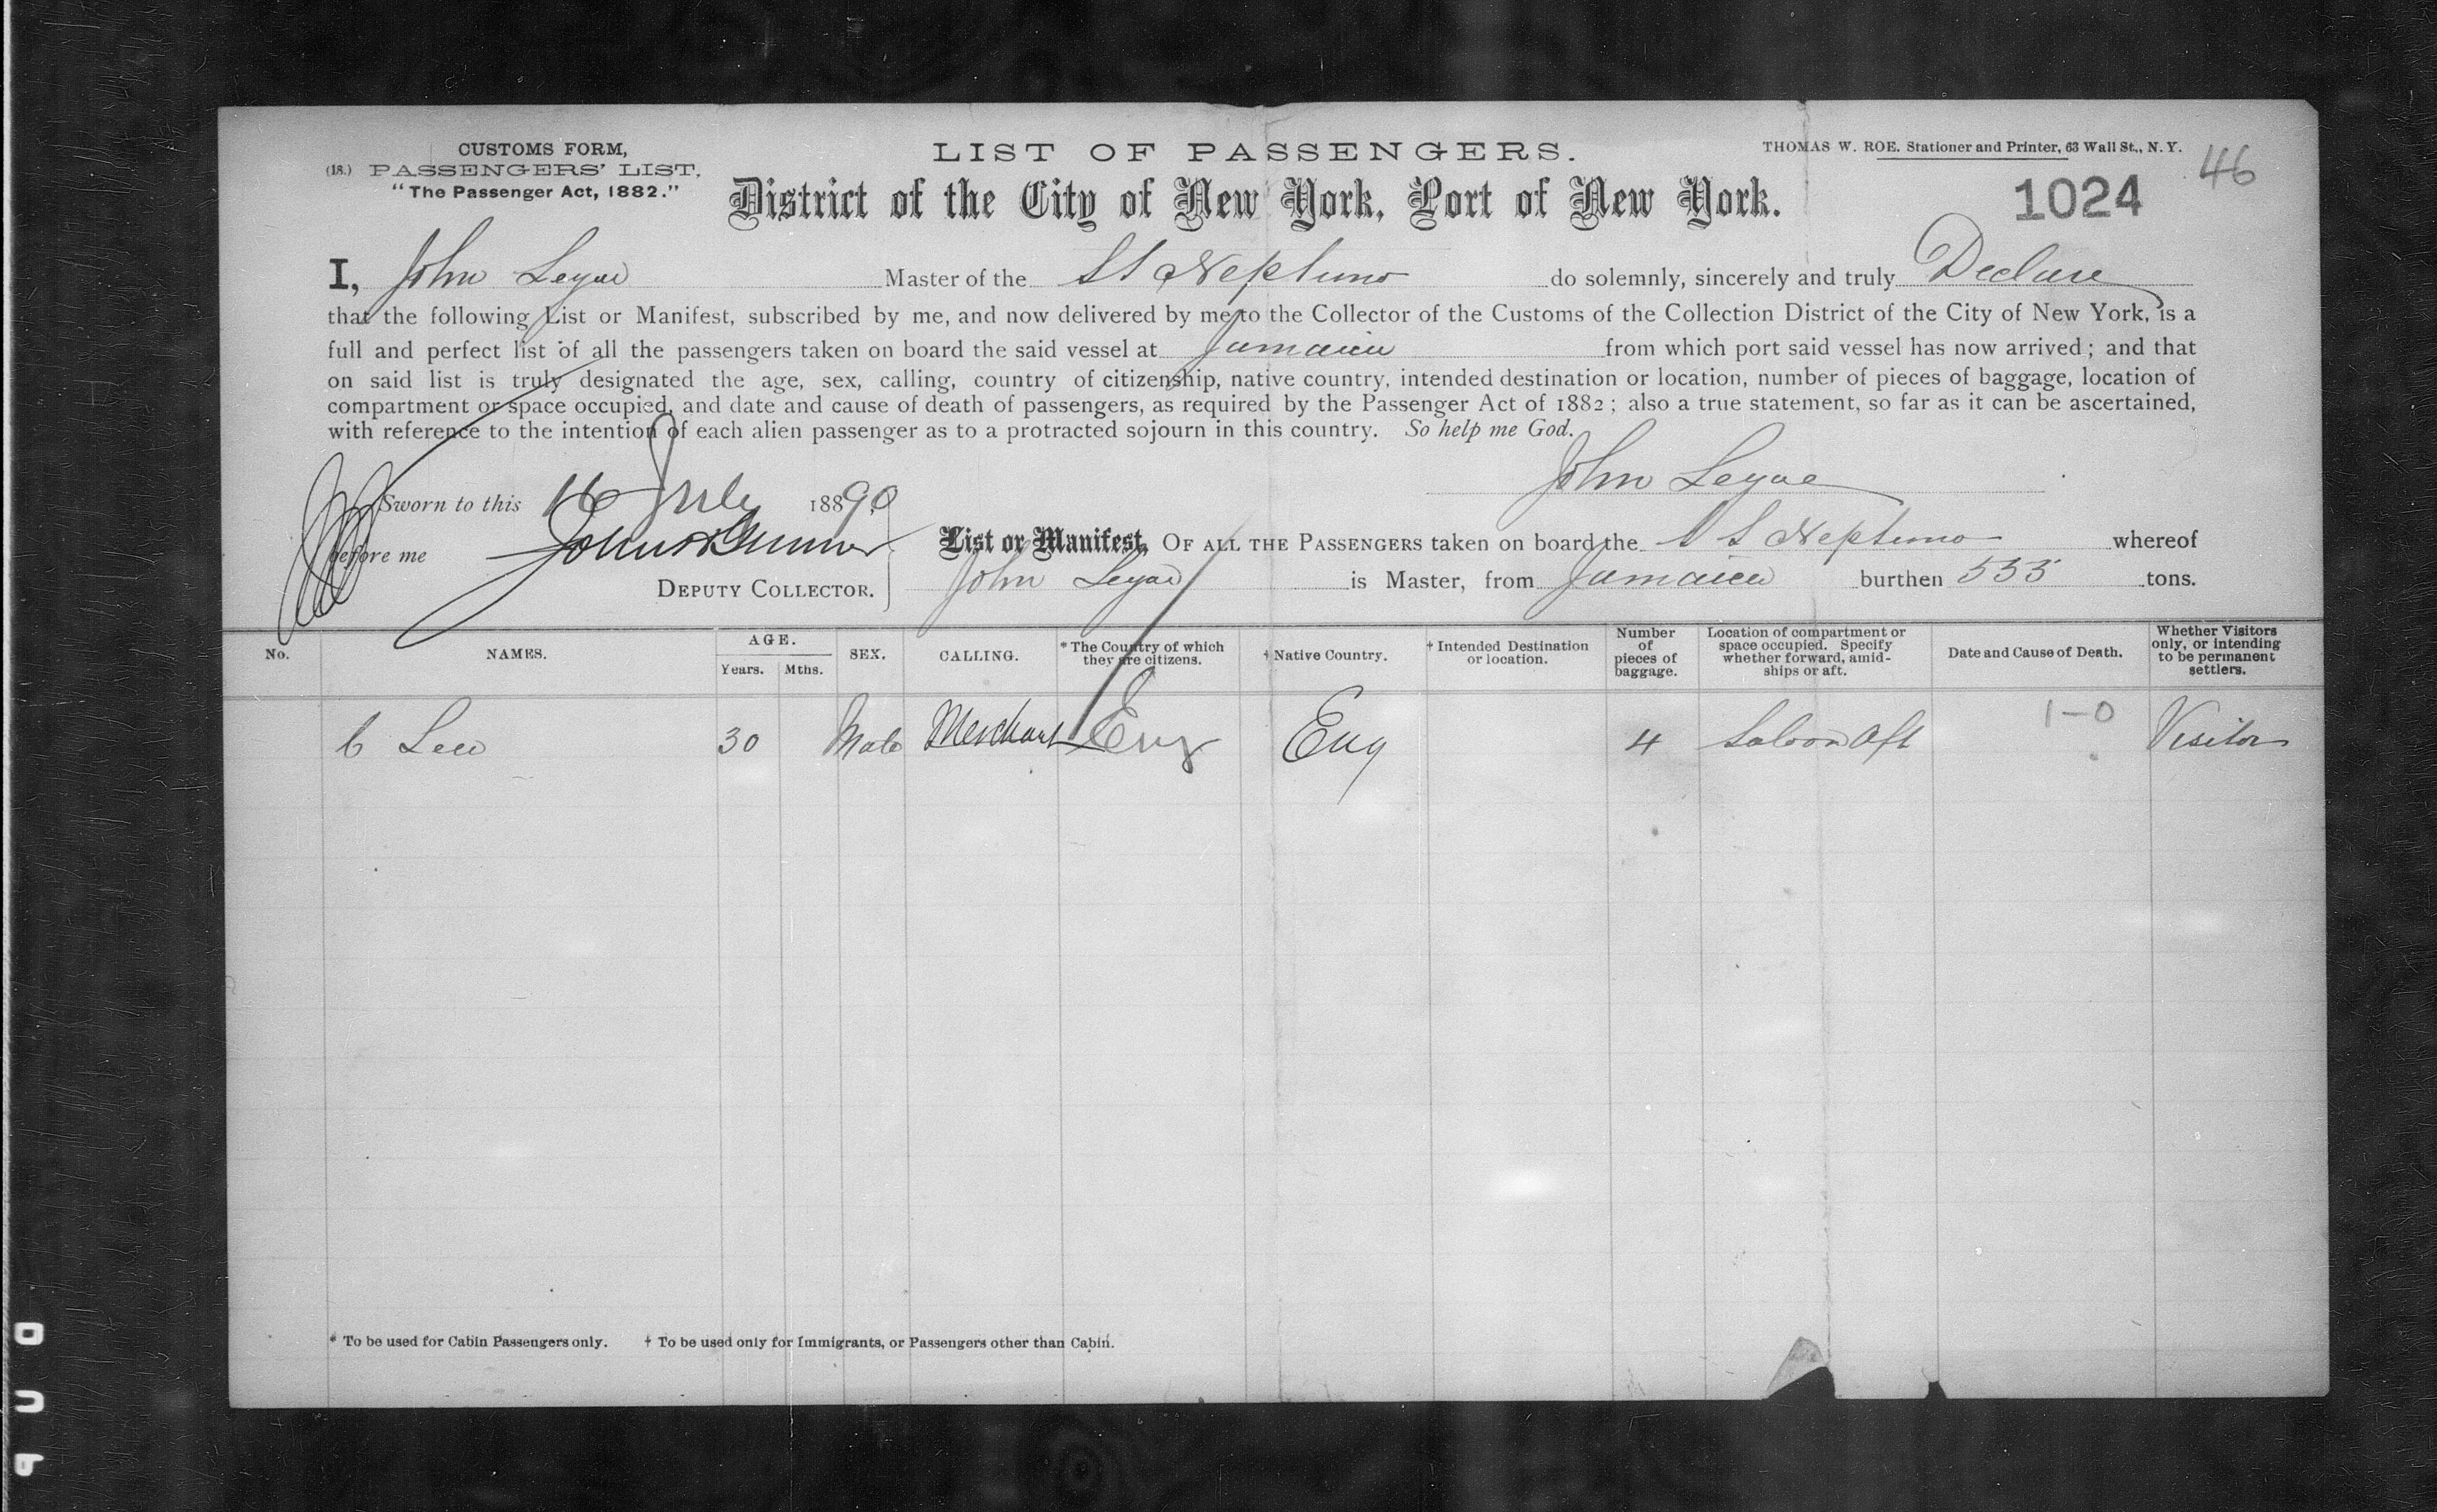 CUSTOMS FORM,
(18.) PASSENGERS' LIST,
"The Passenger Act, 1882."
LIST OF PASSENGERS.
THOMAS W. ROE. Stationer and Printer, 63 Wall St., N. Y.
46
District of the City of New York, Port of New York.
1024
I, John Master of the SS Neptuno do solemnly, sincerely and truly Declare
that the following List or Manifest, subscribed by me, and now delivered by me to the Collector of the Customs of the Collection District of the City of New York, is a
full and perfect list of all the passengers taken on board the said vessel at Jamaica from which port said vessel has now arrived; and that
on said list is truly designated the age, sex, calling, country of citizenship, native country, intended destination or location, number of pieces of baggage, location of
compartment or space occupied, and date and cause of death of passengers, as required by the Passenger Act of 1882; also a true statement, so far as it can be ascertained,
with reference to the intention of each alien passenger as to a protracted sojourn in this country. So help me God.
John
Sworn to this 16 July 1890
before me
DEPUTY COLLECTOR.
List or Manifest, OF ALL THE PASSENGERS taken on board the SS Neptuno whereof
John is Master, from Jamaica burthen 533 tons.
No. NAMES. AGE. Years. Mths. SEX. CALLING. * The Country of which they are citizens. † Native Country. † Intended Destination or location. Number of pieces of baggage. Location of compartment or space occupied. Specify whether forward, amidships or aft. Date and Cause of Death. Whether Visitors only, or intending to be permanent settlers.
1-0
C 30 Male Merchant Eng Eng 4 Saloon Aft Visitor
* To be used for Cabin Passengers only. † To be used only for Immigrants, or Passengers other than Cabin.